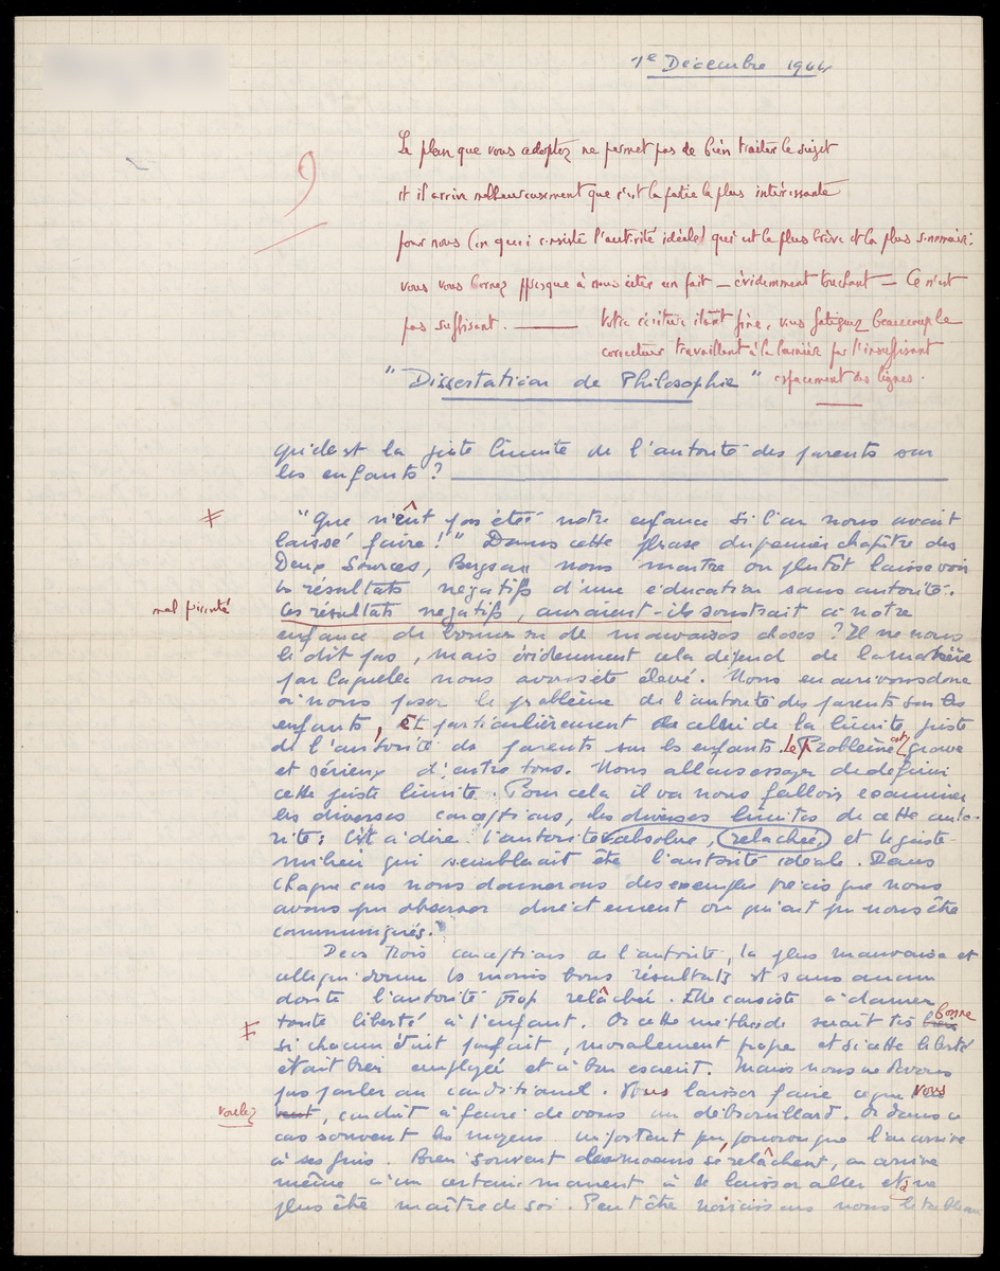 1e Décembre 1944
9
Le plan que vous adoptez ne permet pas de bien traiter le sujet
et il arrive malheureusement que c'est la partie la plus intéressante
pour nous (en quoi consiste l'autorité idéale) qui est la plus brève et la plus sommaire.
vous vous bornez presque à nous citer un fait — évidemment touchant — Ce n'est
pas suffisant. — Votre écriture étant fine, vous fatiguez beaucoup le
correcteur travaillant à la lumière par l'insuffisant
espacement des lignes.
"Dissertation de Philosophie"
quelle est la juste limite de l'autorité des parents sur
les enfants ?
≠ "Que n'eût pas été notre enfance si l'on nous avait
laissé faire !" Dans cette phrase du premier chapitre des
Deux Sources, Bergson nous montre ou plutôt laisse voir
les résultats négatifs d'une éducation sans autorité.
mal présenté
Ces résultats négatifs, auraient-ils soustrait à notre
enfance de bonnes ou de mauvaises choses ? Il ne nous
le dit pas, mais évidemment cela dépend de la manière
par laquelle nous avons été élevé. Nous en arrivons donc
à nous poser le problème de l'autorité des parents sur les
enfants, et particulièrement de celui de la limite juste
de l'autorité des parents sur les enfants. Le Problème est grave
et sérieux d'entre tous. Nous allons essayer de définir
cette juste limite. Pour cela il va nous falloir examiner
les diverses conceptions, les diverses limites de cette auto-
rité; c'est à dire l'autorité absolue, relachée, et le juste-
milieu qui semblerait être l'autorité idéale. Dans
chaque cas nous donnerons des exemples précis que nous
avons pu observer directement ou qui ont pu nous être
communiqués.
Des trois conceptions de l'autorité, la plus mauvaise et
celle qui donne les moins bons résultats est sans aucun
doute l'autorité trop relâchée. Elle consiste à donner
≠ toute liberté à l'enfant. Or cette méthode serait très bonne
si chacun était parfait, moralement propre et si cette liberté
était bien employée et à bon escient. Mais nous ne devons
pas parler au conditionnel. Vous laisser faire ce que vous
voulez
veut, conduit à faire de vous un débrouillard. Or dans ce
cas souvent les moyens importent peu, pourvu que l'on arrive
à ses fins. Bien souvent les moeurs se relâchent, on arrive
même à un certain moment à se laisser aller et à ne
plus être maître de soi. Peut être noircissons nous le tableau